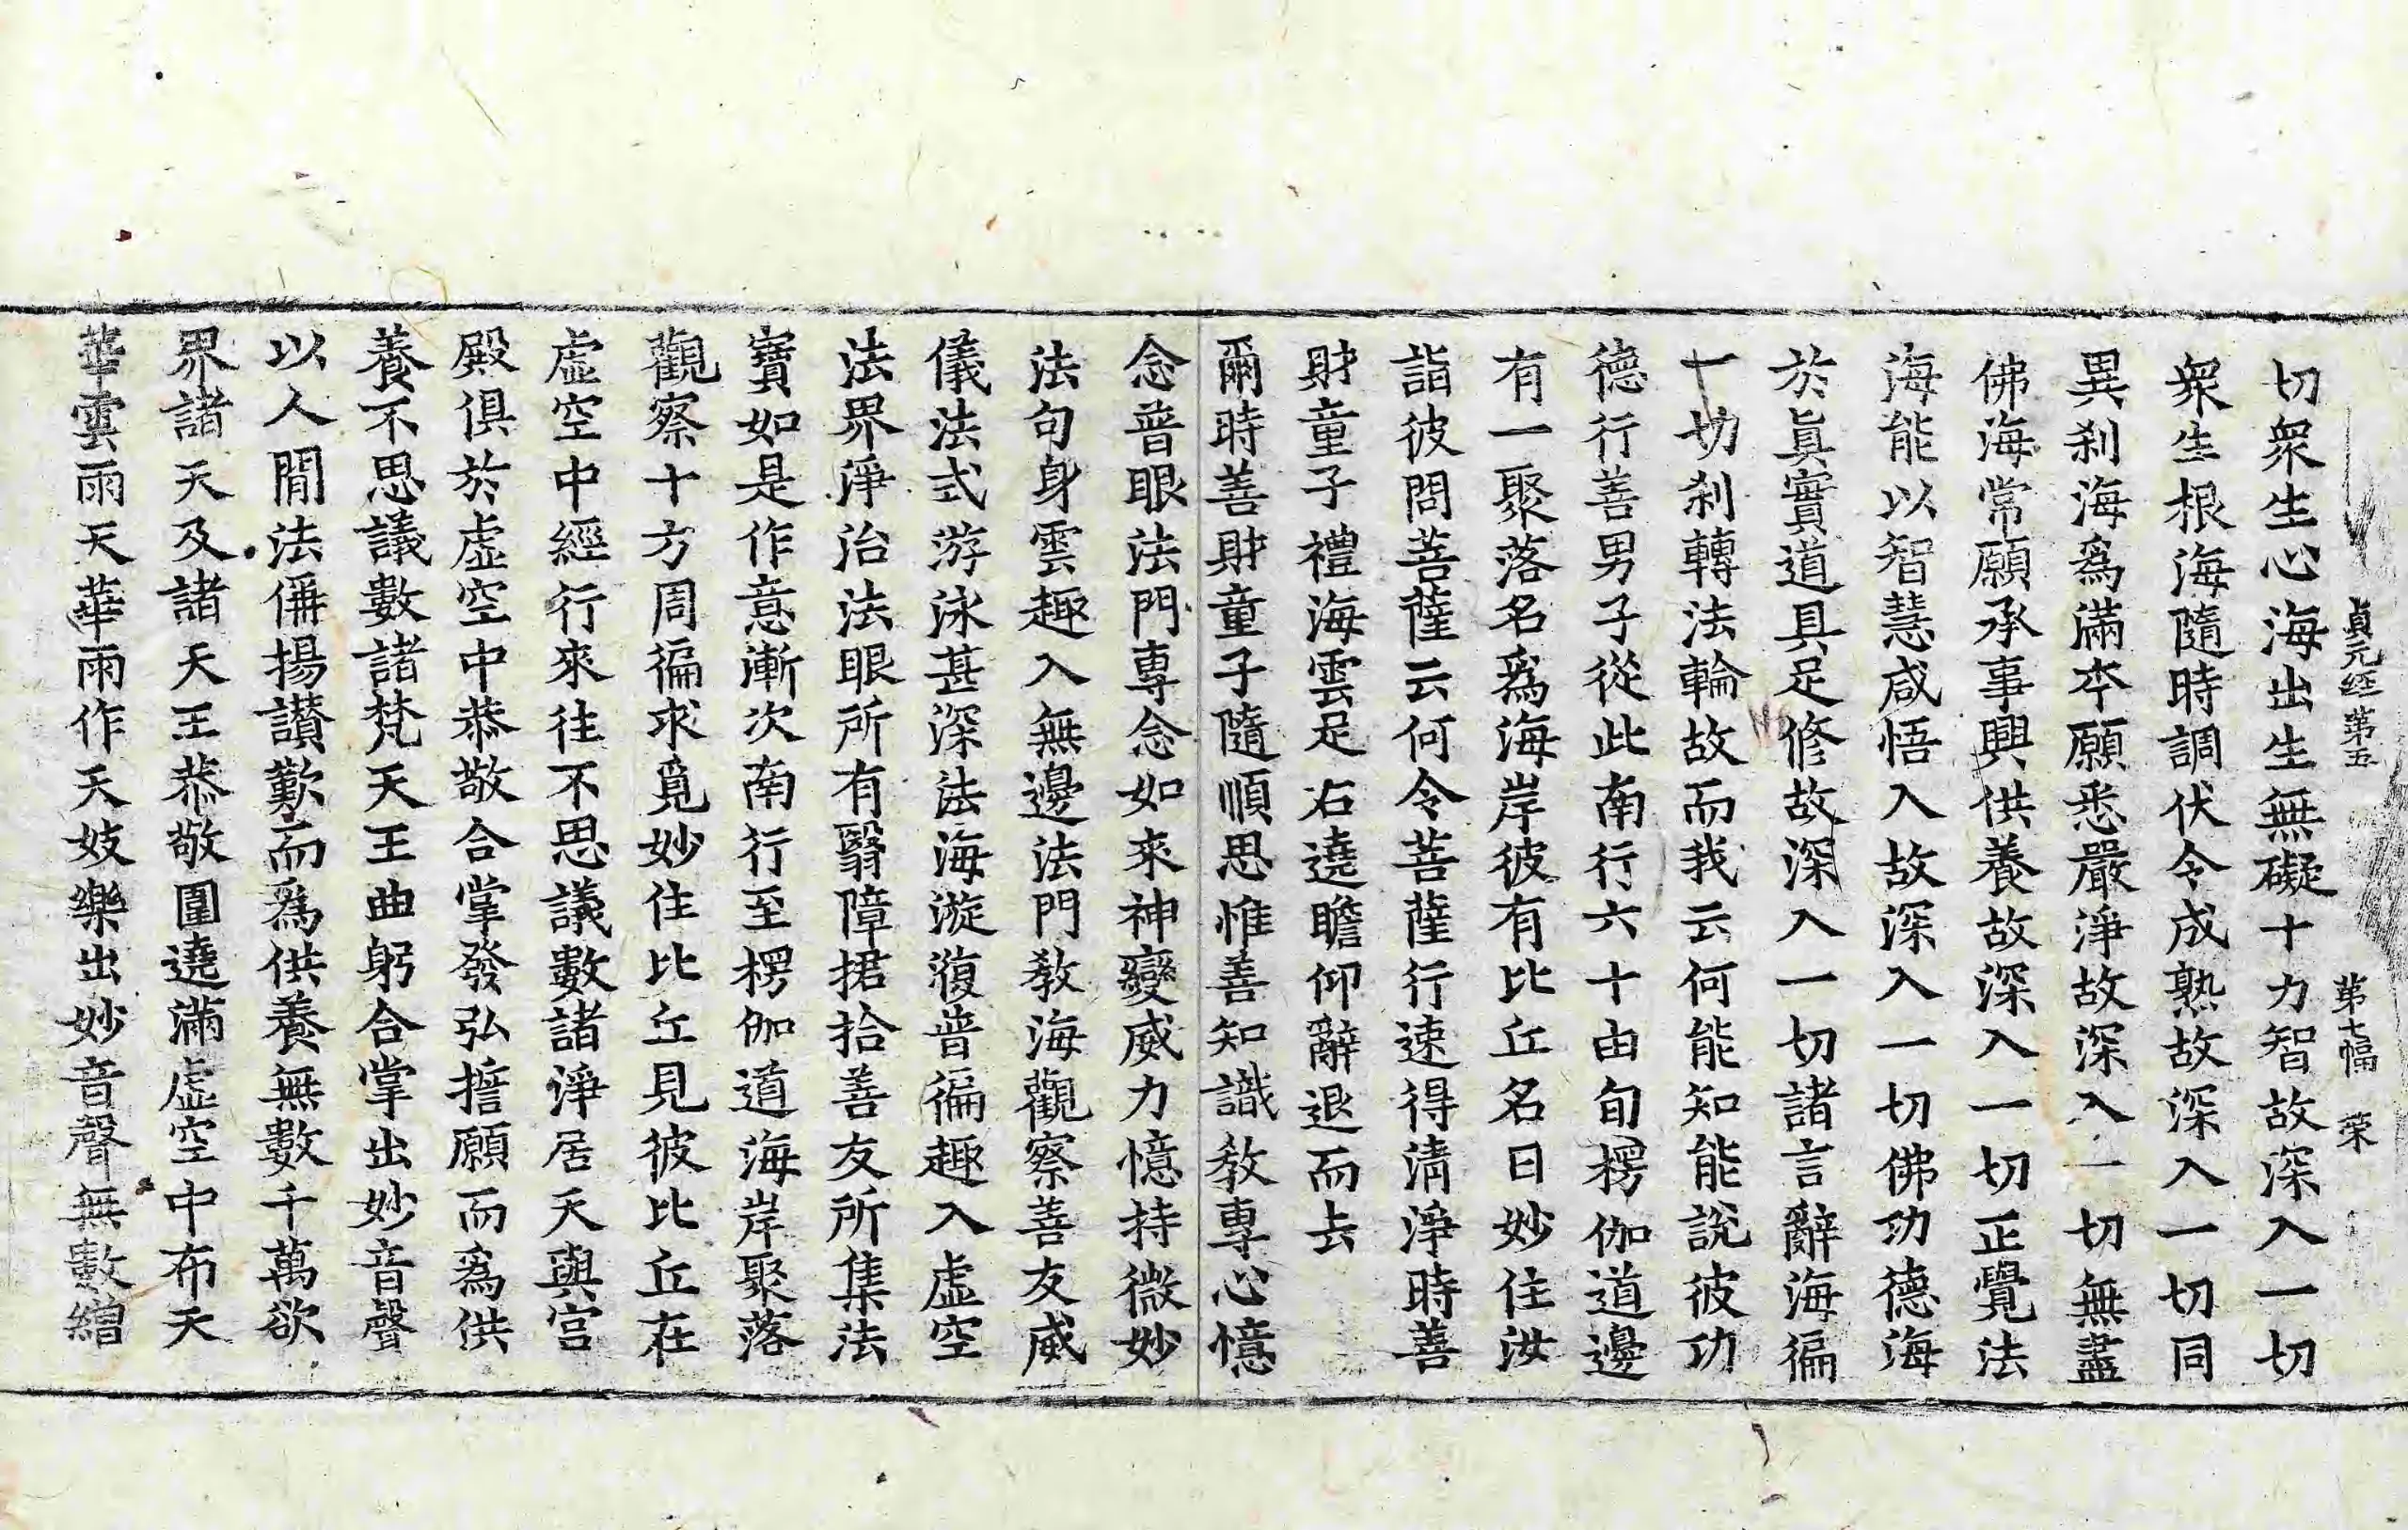 貞元経第五 第七幅 榮
切衆生心海出生無礙十力智故深入一切
衆生根海隨時調伏令成熟故深入一切同
異剎海爲滿夲願悉嚴淨故深入一切無盡
佛海常願承事興供養故深入一切正覺法
海能以智慧咸悟入故深入一切佛功德海
於眞實道具足修故深入一切諸言辭海徧
一切剎轉法輪故而我云何能知能說彼功
德行善男子從此南行六十由旬楞伽道邊
有一聚落名爲海岸彼有比丘名曰妙住汝
詣彼問菩薩云何令菩薩行速得淸淨時善
財童子禮海雲足右遶瞻仰辭退而去
爾時善財童子隨順思惟善知識敎專心憶
念普眼法門專念如來神變威力憶持微妙
法句身雲趣入無邊法門敎海觀察善友威
儀法式游泳甚深法海漩澓普徧趣入虛空
法界淨治法眼所有翳障捃拾善友所集法
寶如是作意漸次南行至楞伽道海岸聚落
觀察十方周徧求覓妙住比丘見彼比丘在
虛空中經行來往不思議數諸淨居天與宮
殿俱於虛空中恭敬合掌發弘誓願而爲供
養不思議數諸梵天王曲躬合掌出妙音聲
以人間法偁揚讃歎而爲供養無數千萬欲
界諸天及諸天王恭敬圍遶滿虛空中布天
華雲雨天華雨作天妓樂出妙音聲無數繒